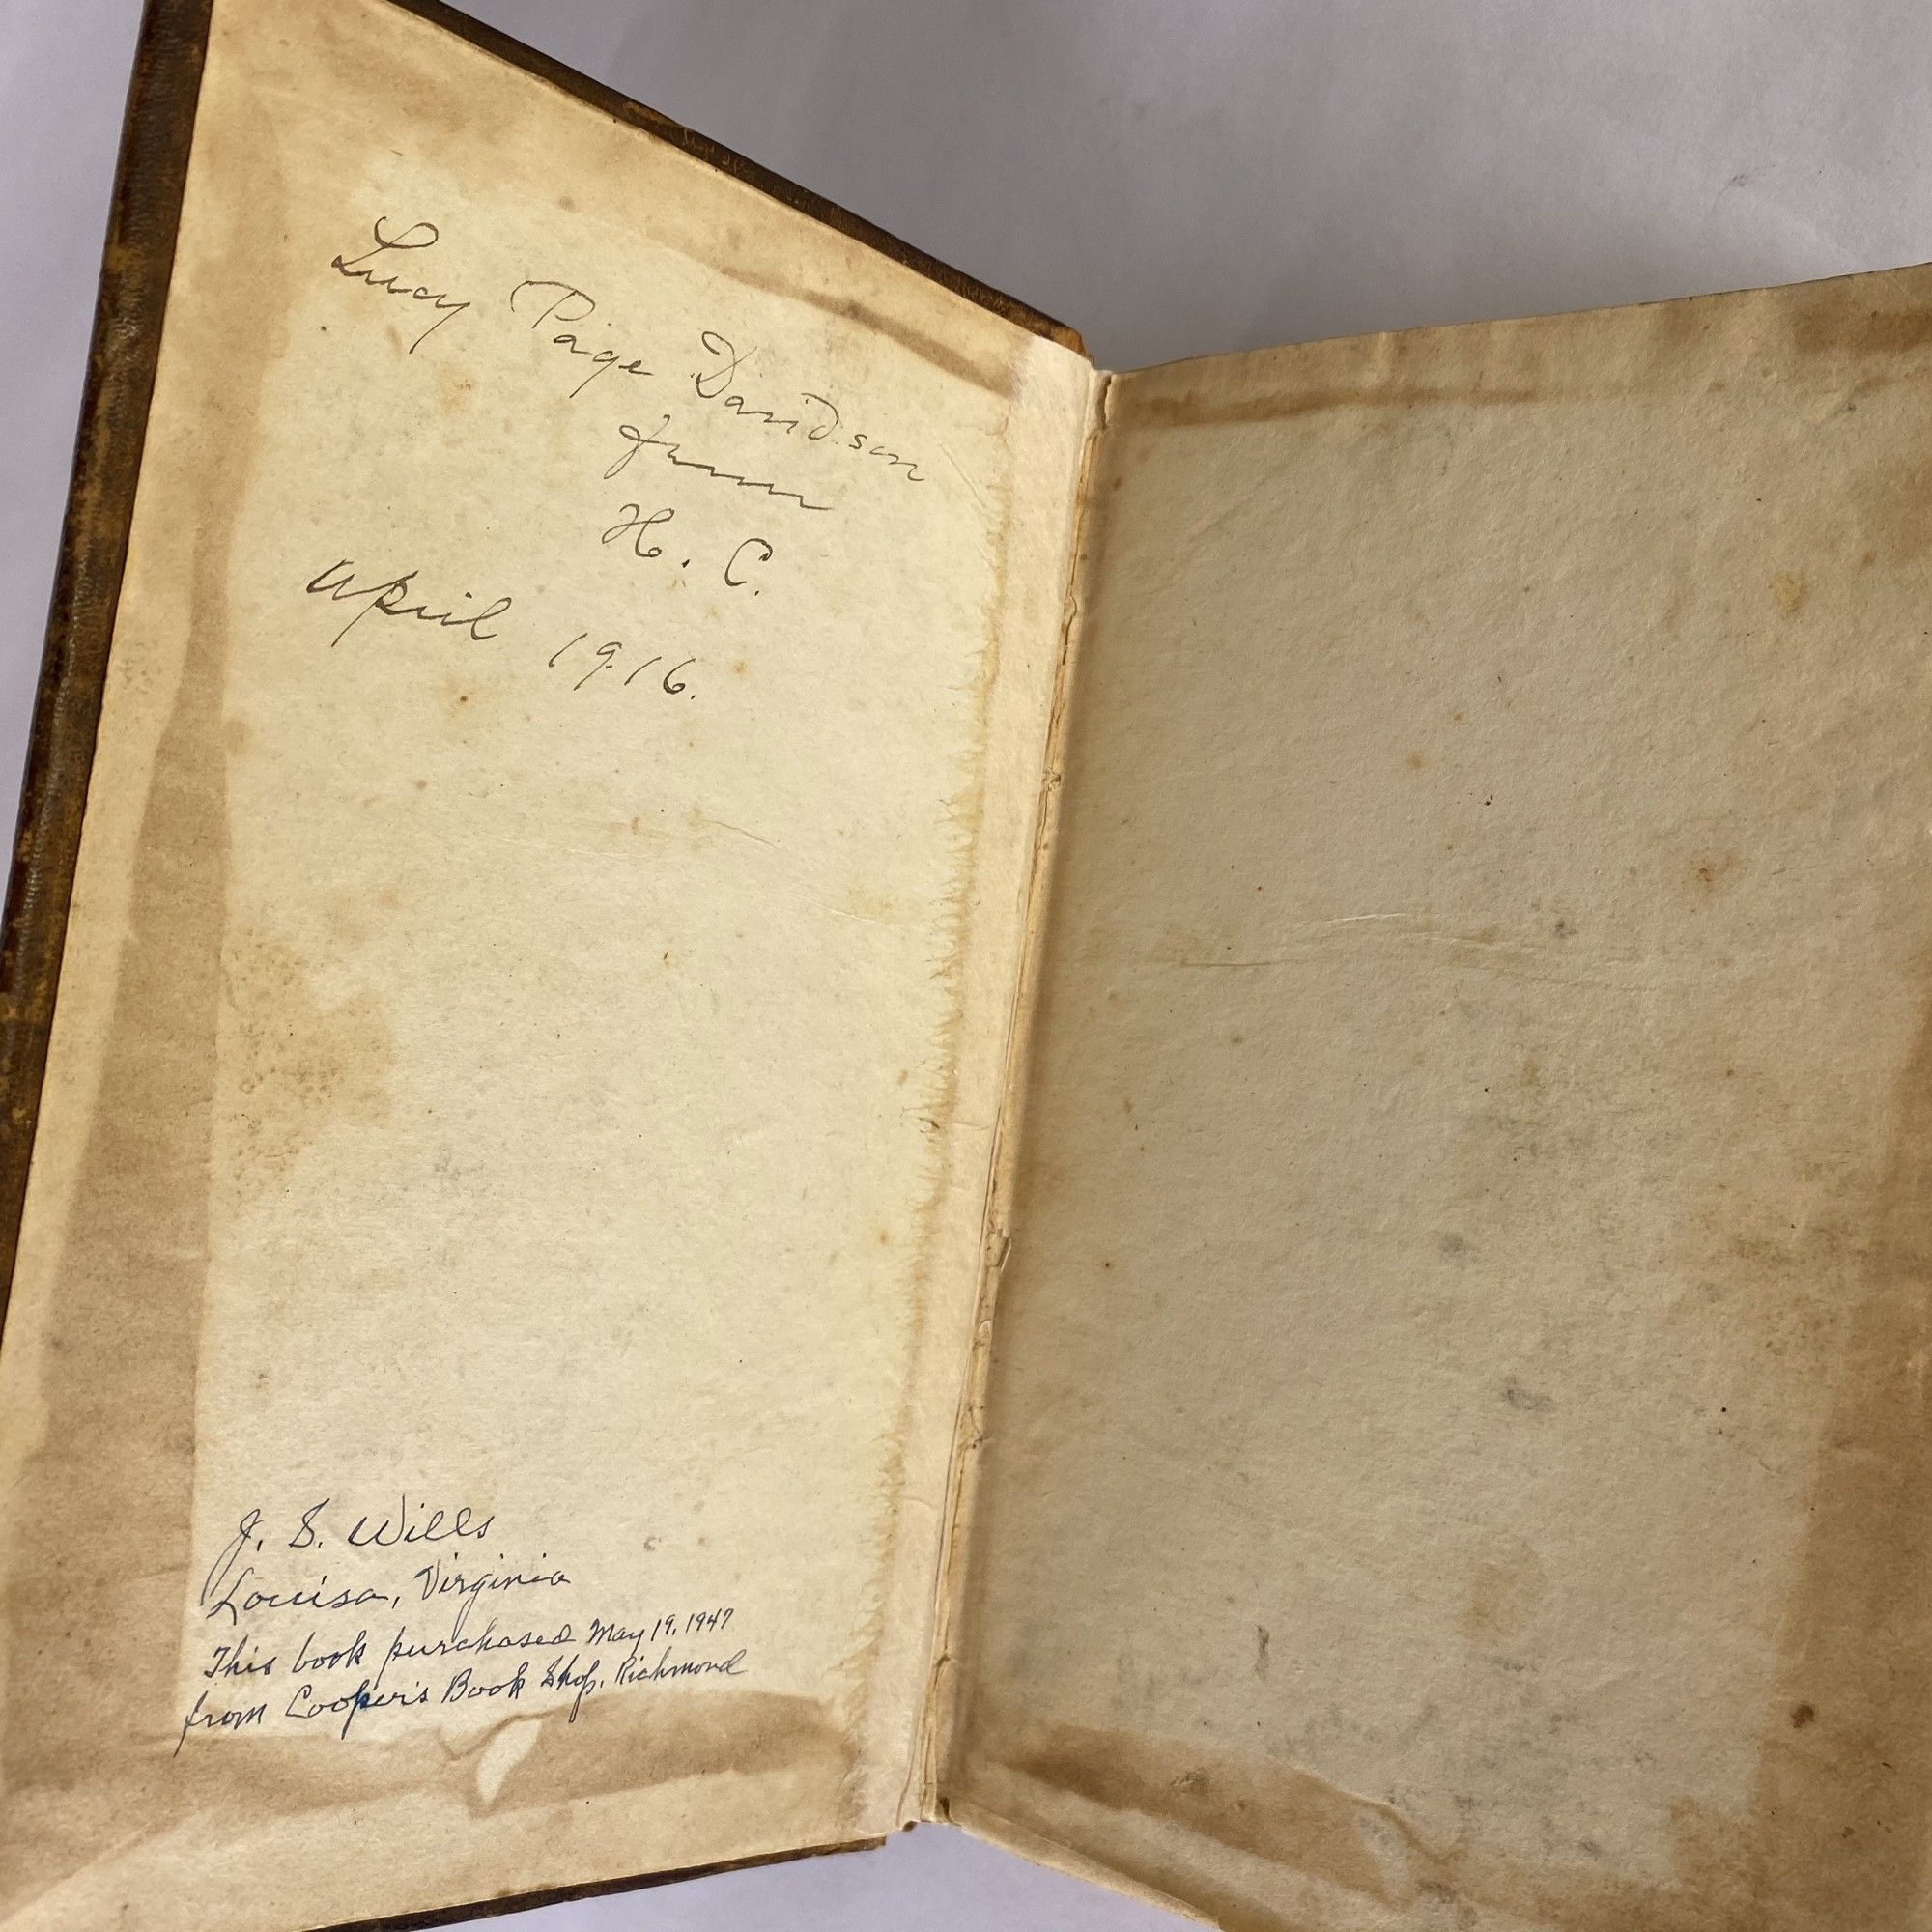 Lucy Page Davidson
from
H. C.
April 1916.
J. S. Wills
Louisa, Virginia
This book purchased May 19, 1947
from Cooper's Book Shop, Richmond